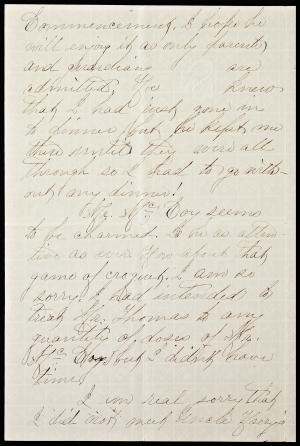 Commencement. I hope he
will enjoy it as only parents
and guardians are
admitted, He knew
that I had just gone in
to dinner but he kept me
there until they were all
through so I had to go with-
out any dinner!
Mr. Mc. Coy seems
to be charmed. to be as atten-
tive as ever. How about that
game of croquet. I am so
sorry. I had intended to
treat Mr. Thomas to any
quantity of doses of Mr.
Mc Coy, but I didn't have
time.
I am real sorry that
I did not meet Uncle